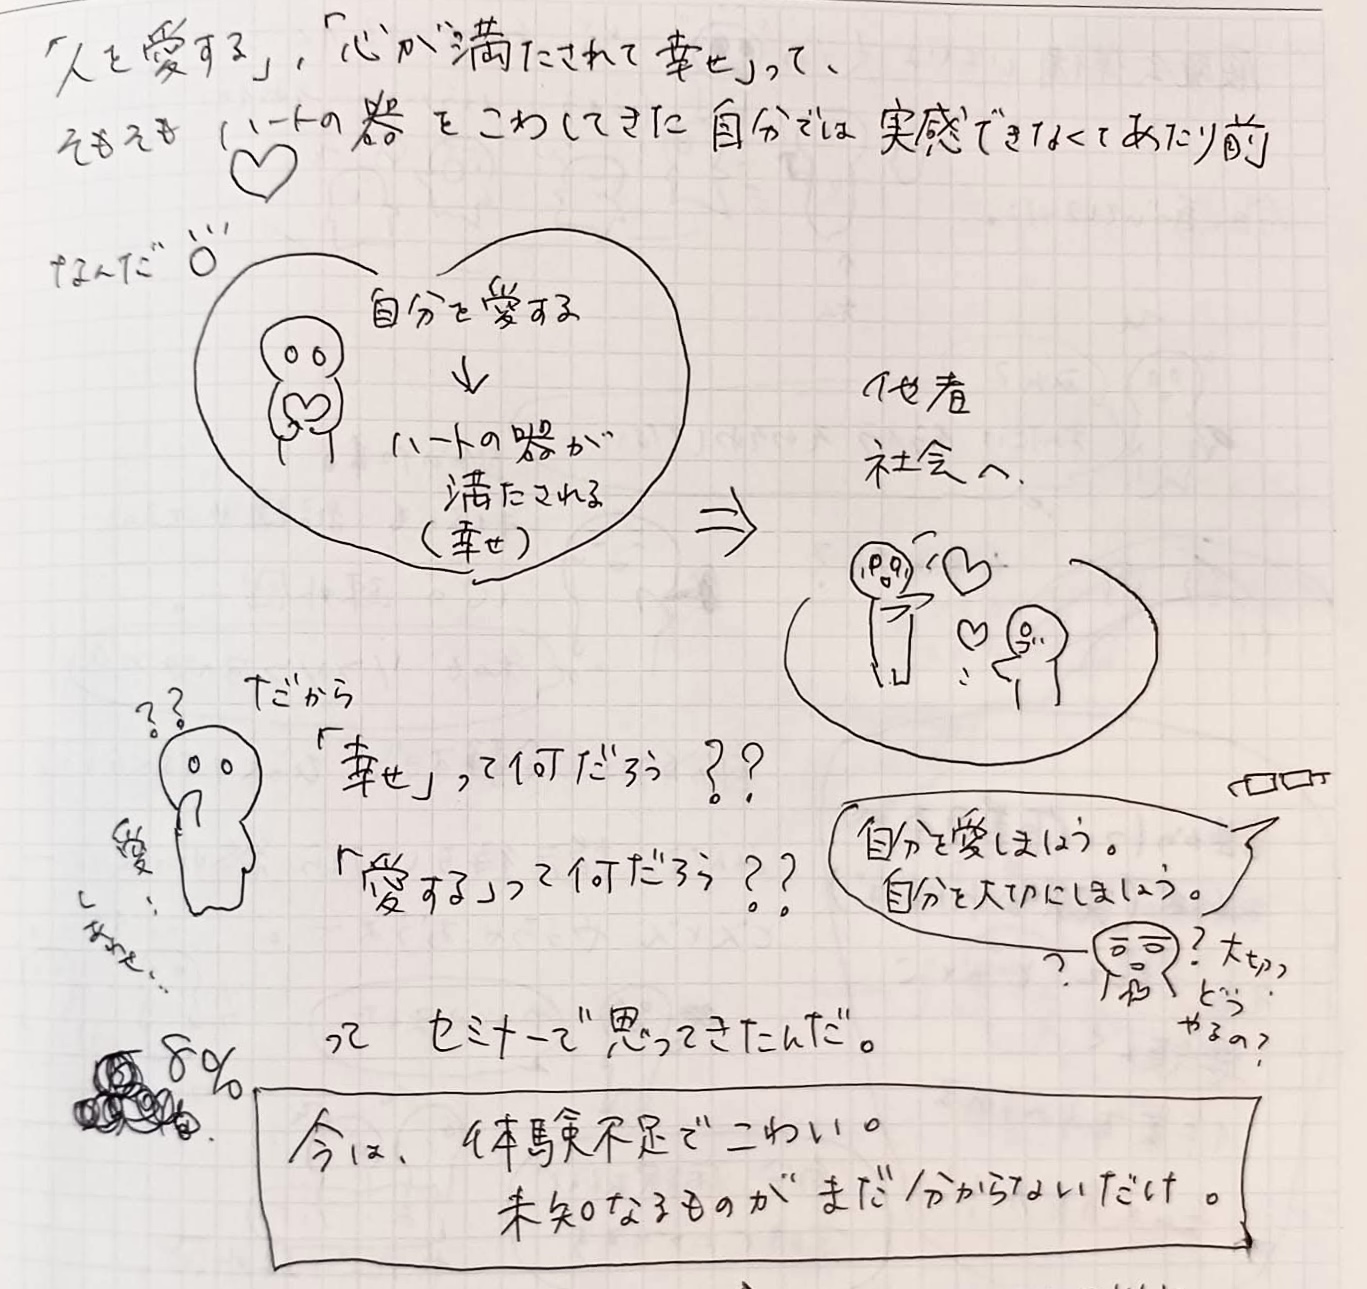 「人を愛する」、「心が満たされて幸せ」って、
そもそも ハートの器をこわしてきた自分では実感できなくてあたり前
なんだ
自分を愛する
↓
ハートの器が
満たされる
(幸せ)
⇒
他者
社会へ
??
だから
「幸せ」って何だろう??
愛…
しあわせ…
「愛する」って何だろう??
自分を愛しましょう。
自分を大切にしましょう。
?
? 大切?
どう
やるの?
って セミナーで思ってきたんだ。
8%
今は、体験不足でこわい。
未知なるものがまだ分からないだけ。